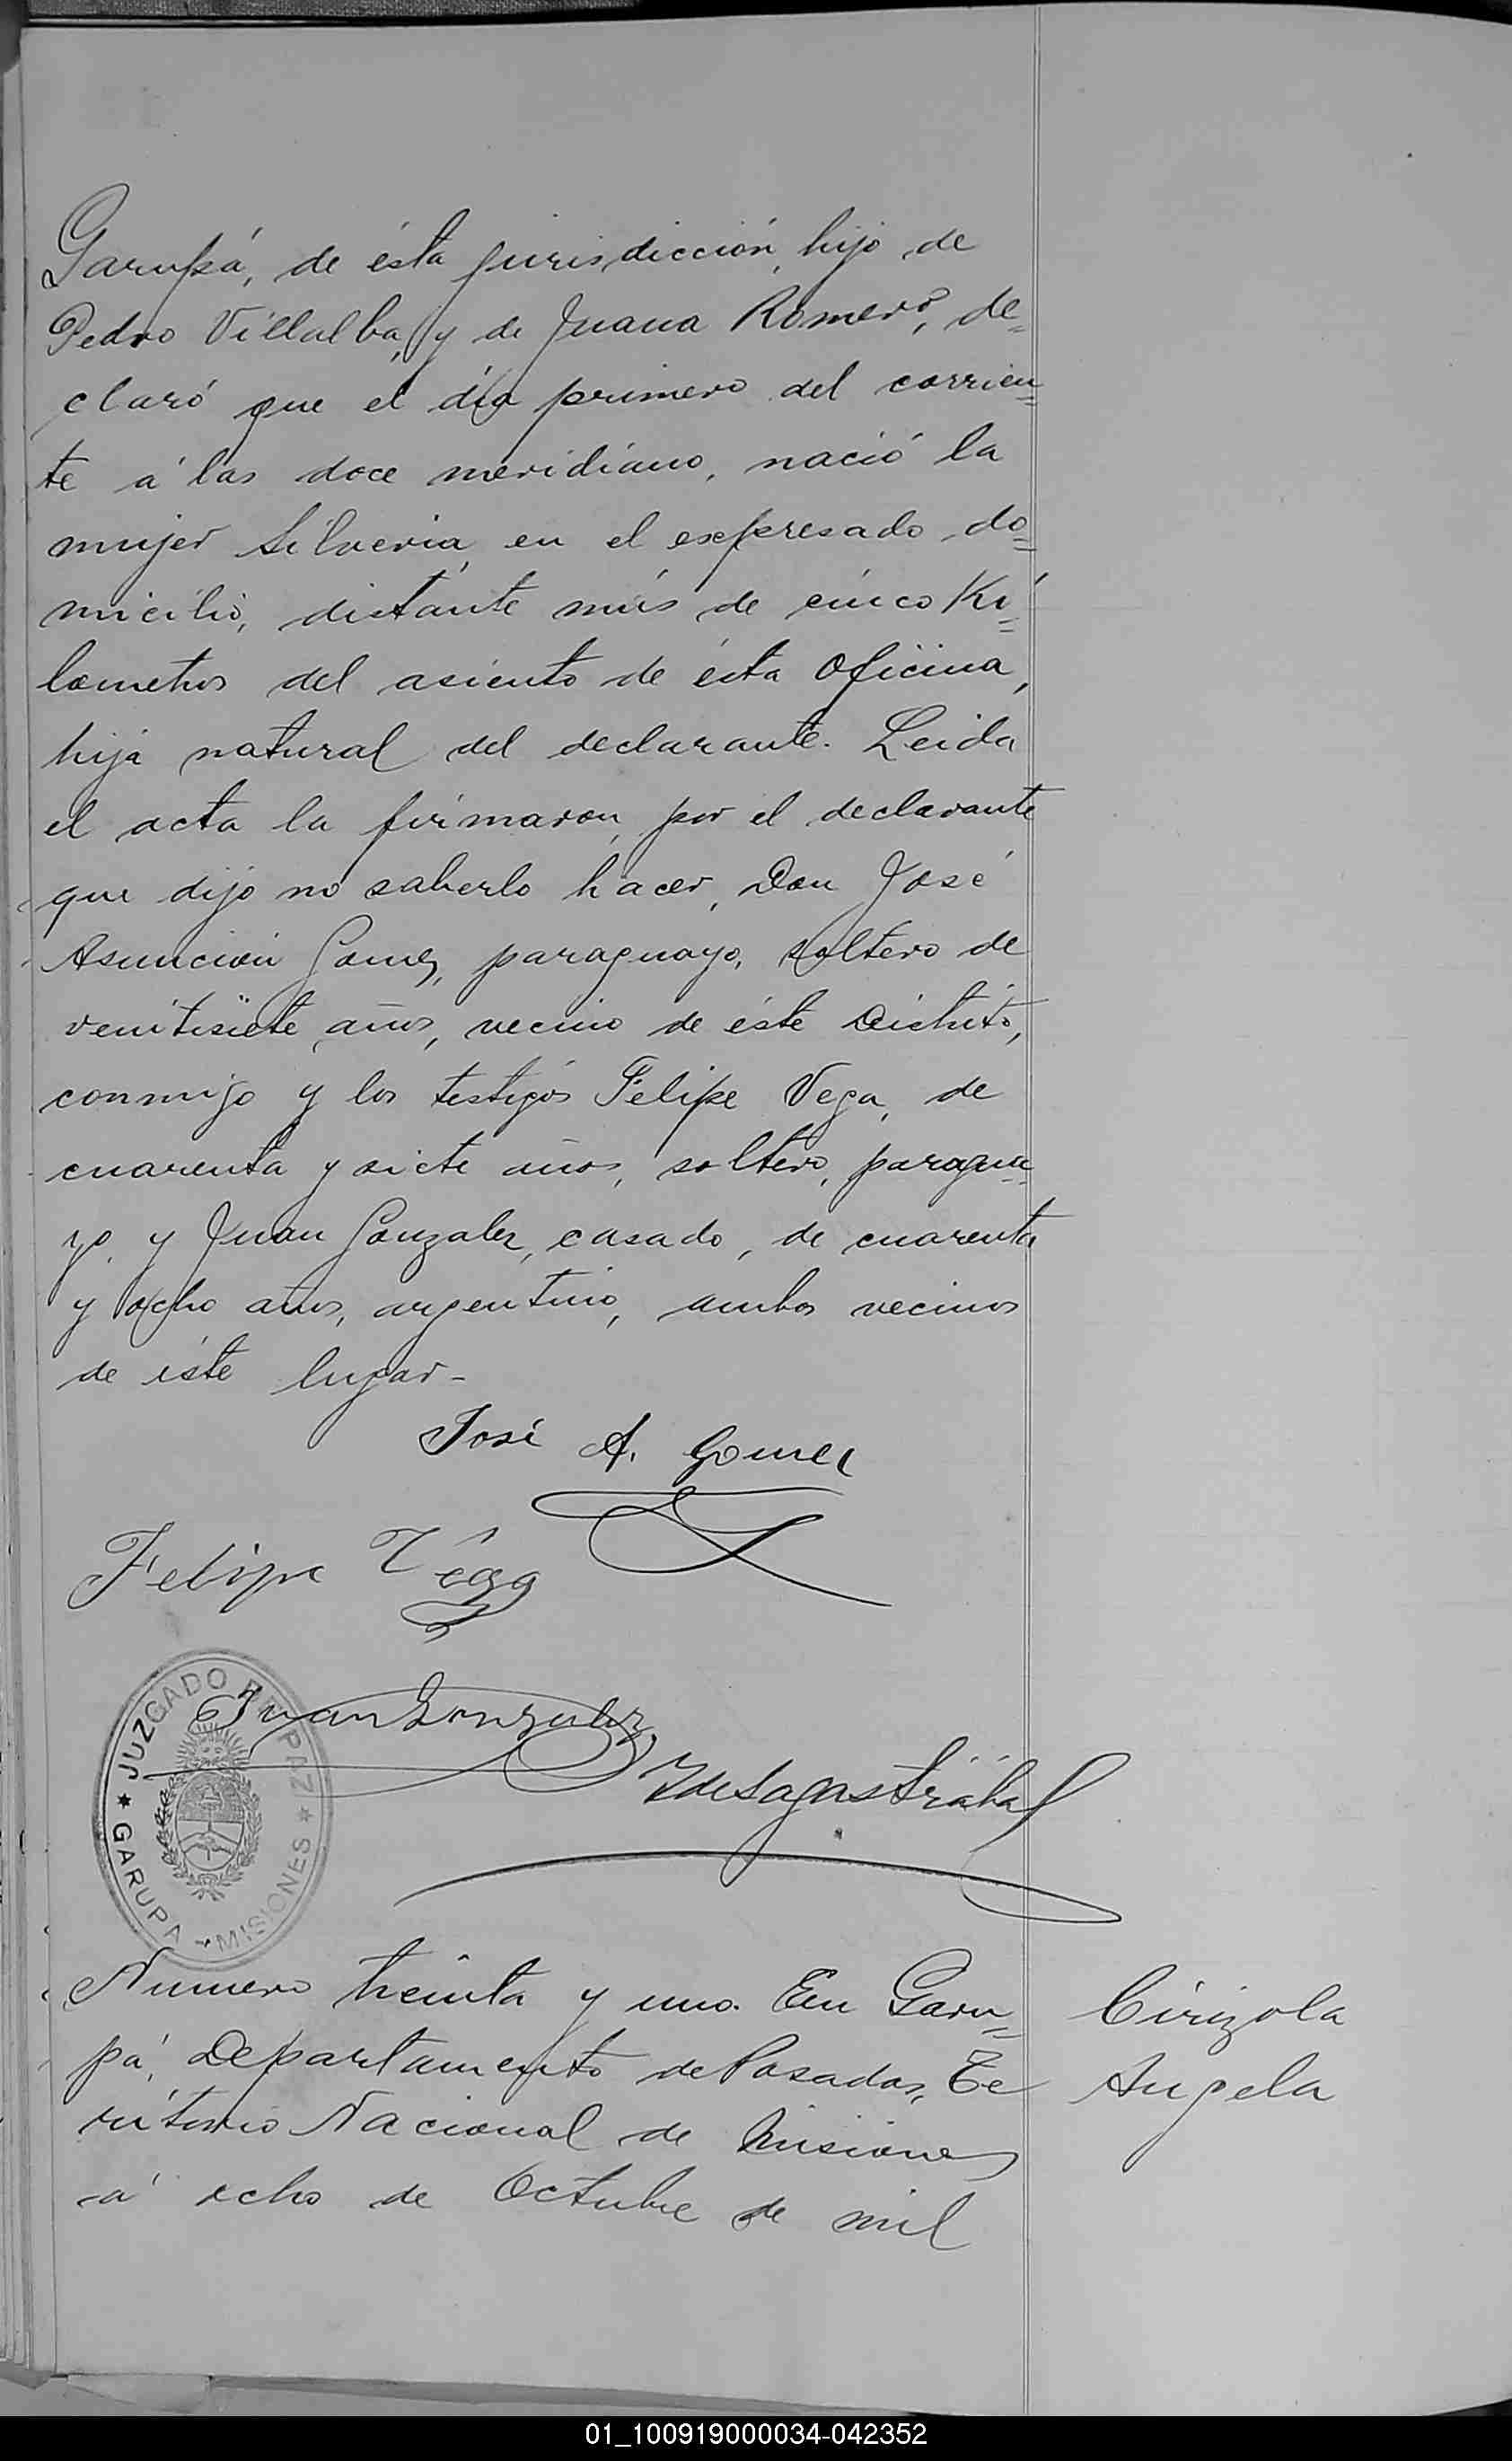 Garupá, de ésta jurisdicción, hijo de
Pedro Villalba, y de Juana Romero, de=
claró que el día primero del corrien=
te á las doce meridiano, nació la
mujer Silveria, en el expresado do=
micilio, distante más de cinco Ki=
lometros del asiento de ésta Oficina,
hija natural del declarante. Leida
el acta la firmaron, por el declarante
que dijo no saberlo hacer, Don José
Asunción Gomez, paraguayo, soltero de
venitisiete años, vecino de éste Distrito,
conmigo y los testigos Felipe Vega, de
cuarenta y siete años, soltero, paragua=
yo, y Juan Gonzalez, casado, de cuarenta
y ocho años, argentino, ambos vecinos
de éste lugar-
José A. Gomez
Felipe Véga
Juan Gonzalez
JUZGADO DE PAZ
GARUPA MISIONES
Numero treinta y uno. En Garu= Cirizola
pá, Departamento de Posadas, Te Angela
rritorio Nacional de Misiones
á ocho de Octubre de mil
01_100919000034-042352